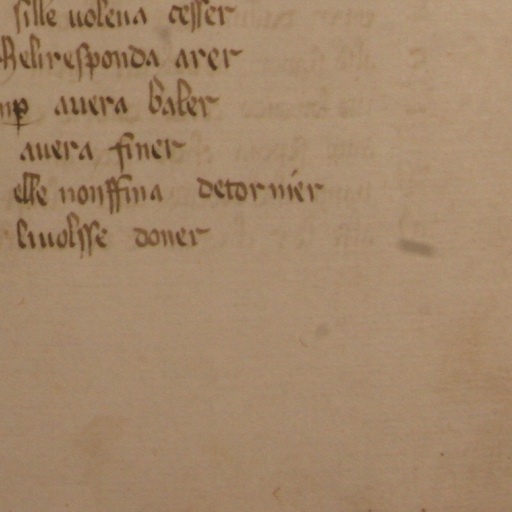 sille uolena cesser
Beliresponda arer
auera baler
auera finer
elle nonffina detornier
liuolisse doner